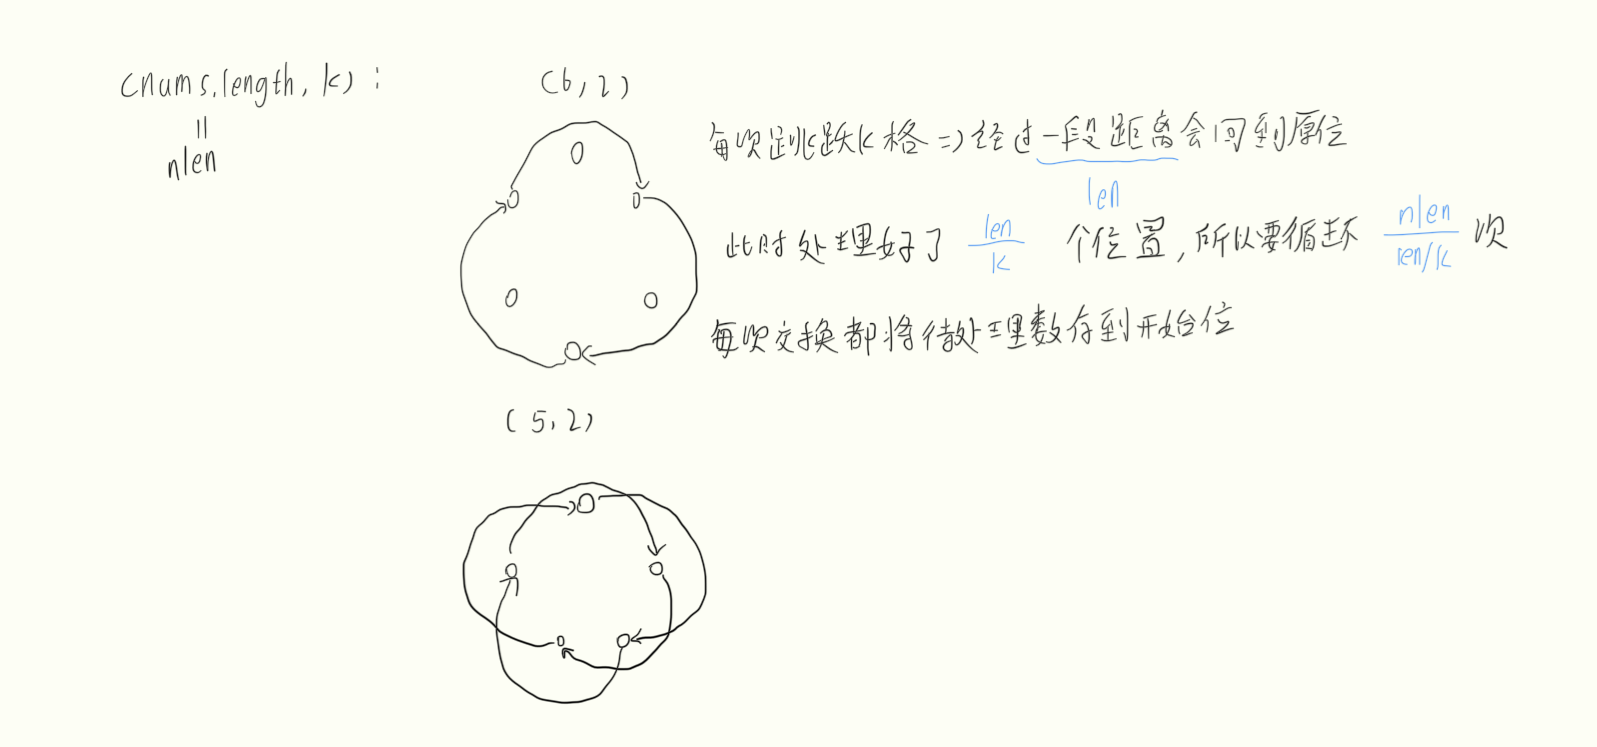 (nums.length, k) :
=
nlen
(6, 2)
每次跳跃k格 => 经过一段距离会回到原位
len
此时处理好了 len/k 个位置,所以要循环 nlen/(len/k) 次
每次交换都将待处理数存到开始位
(5, 2)